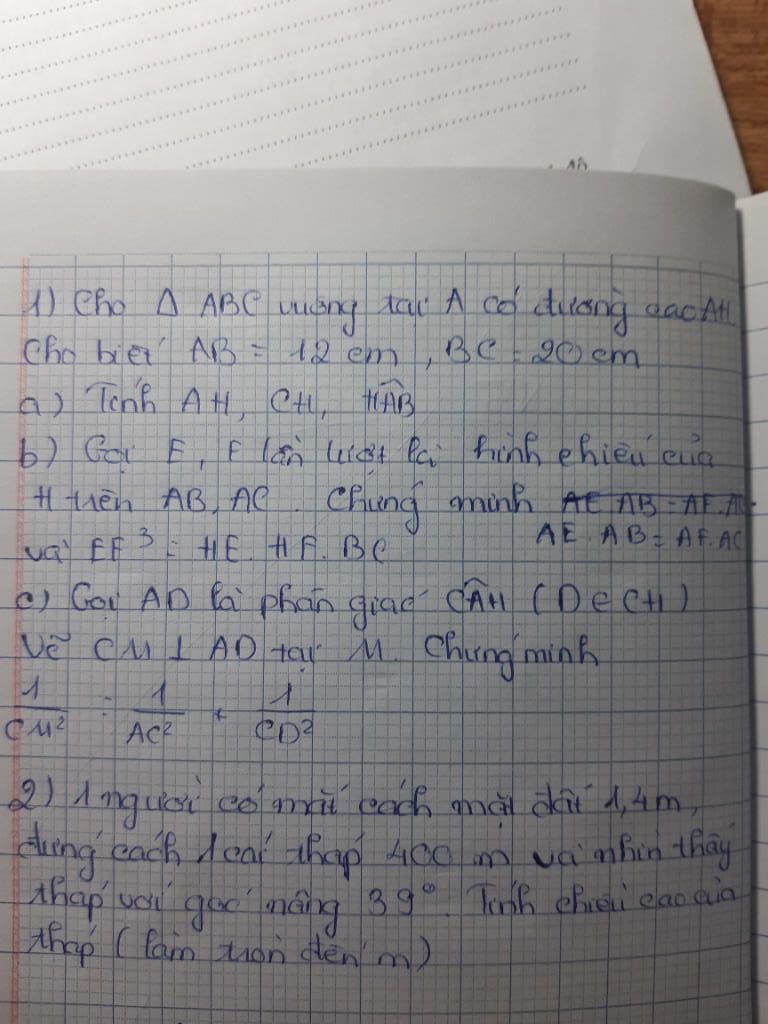 1) Cho Δ ABC vuông tại A có đường cao AH
Cho biết AB = 12 cm, BC = 20 cm
a) Tính AH, CH, HÂB
b) Gọi E, F lần lượt là hình chiếu của
H trên AB, AC. Chứng minh AE AB = AF. AC
AE. AB = AF. AC
và EF³ = HE. HF. BC
c) Gọi AD là phân giác CÂH (D ∈ CH)
Vẽ CM ⊥ AD tại M. Chứng minh
1/CM² = 1/AC² + 1/CD²
2) 1 người có mắt cách mặt đất 1,4m,
đứng cách 1 cái tháp 400 m và nhìn thấy
tháp với góc nâng 39°. Tính chiều cao của
tháp (làm tròn đến m)